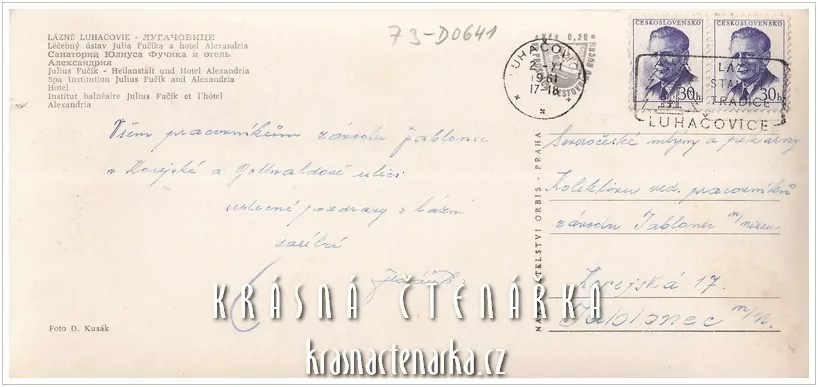 LÁZNĚ LUHAČOVIE - ЛУГАЧОВИЦЕ
Léčebný ústav Julia Fučíka a hotel Alexandria
Санаторий Юлиуса Фучика и отель
Александрия
Julius Fučík - Heilanstalt und Hotel Alexandria
Spa Institution Julius Fučík and Alexandria
Hotel
Institut balnéaire Julius Fučík et l'hôtel
Alexandria
73-D0641
LUHAČOVICE
2.-XI
1961
17-18
ČESKOSLOVENSKO
30h
ČESKOSLOVENSKO
30h
LÁZ
STAR
TRADICE
LUHAČOVICE
Všem pracovníkům závodu Jablonec
v Korejské a Gottwaldově ulici
srdečné pozdravy z lázní
zasílá
NAKLADATELSTVÍ ORBIS - PRAHA
Severočeské mlýny a pekárny
Kolektivu ved. pracovníků
závodu Jablonec n/Nisou
Korejská 17.
Jablonec n/N.
Foto D. Kusák
KRÁSNÁ ČTENÁŘKA
krasnactenarka.cz